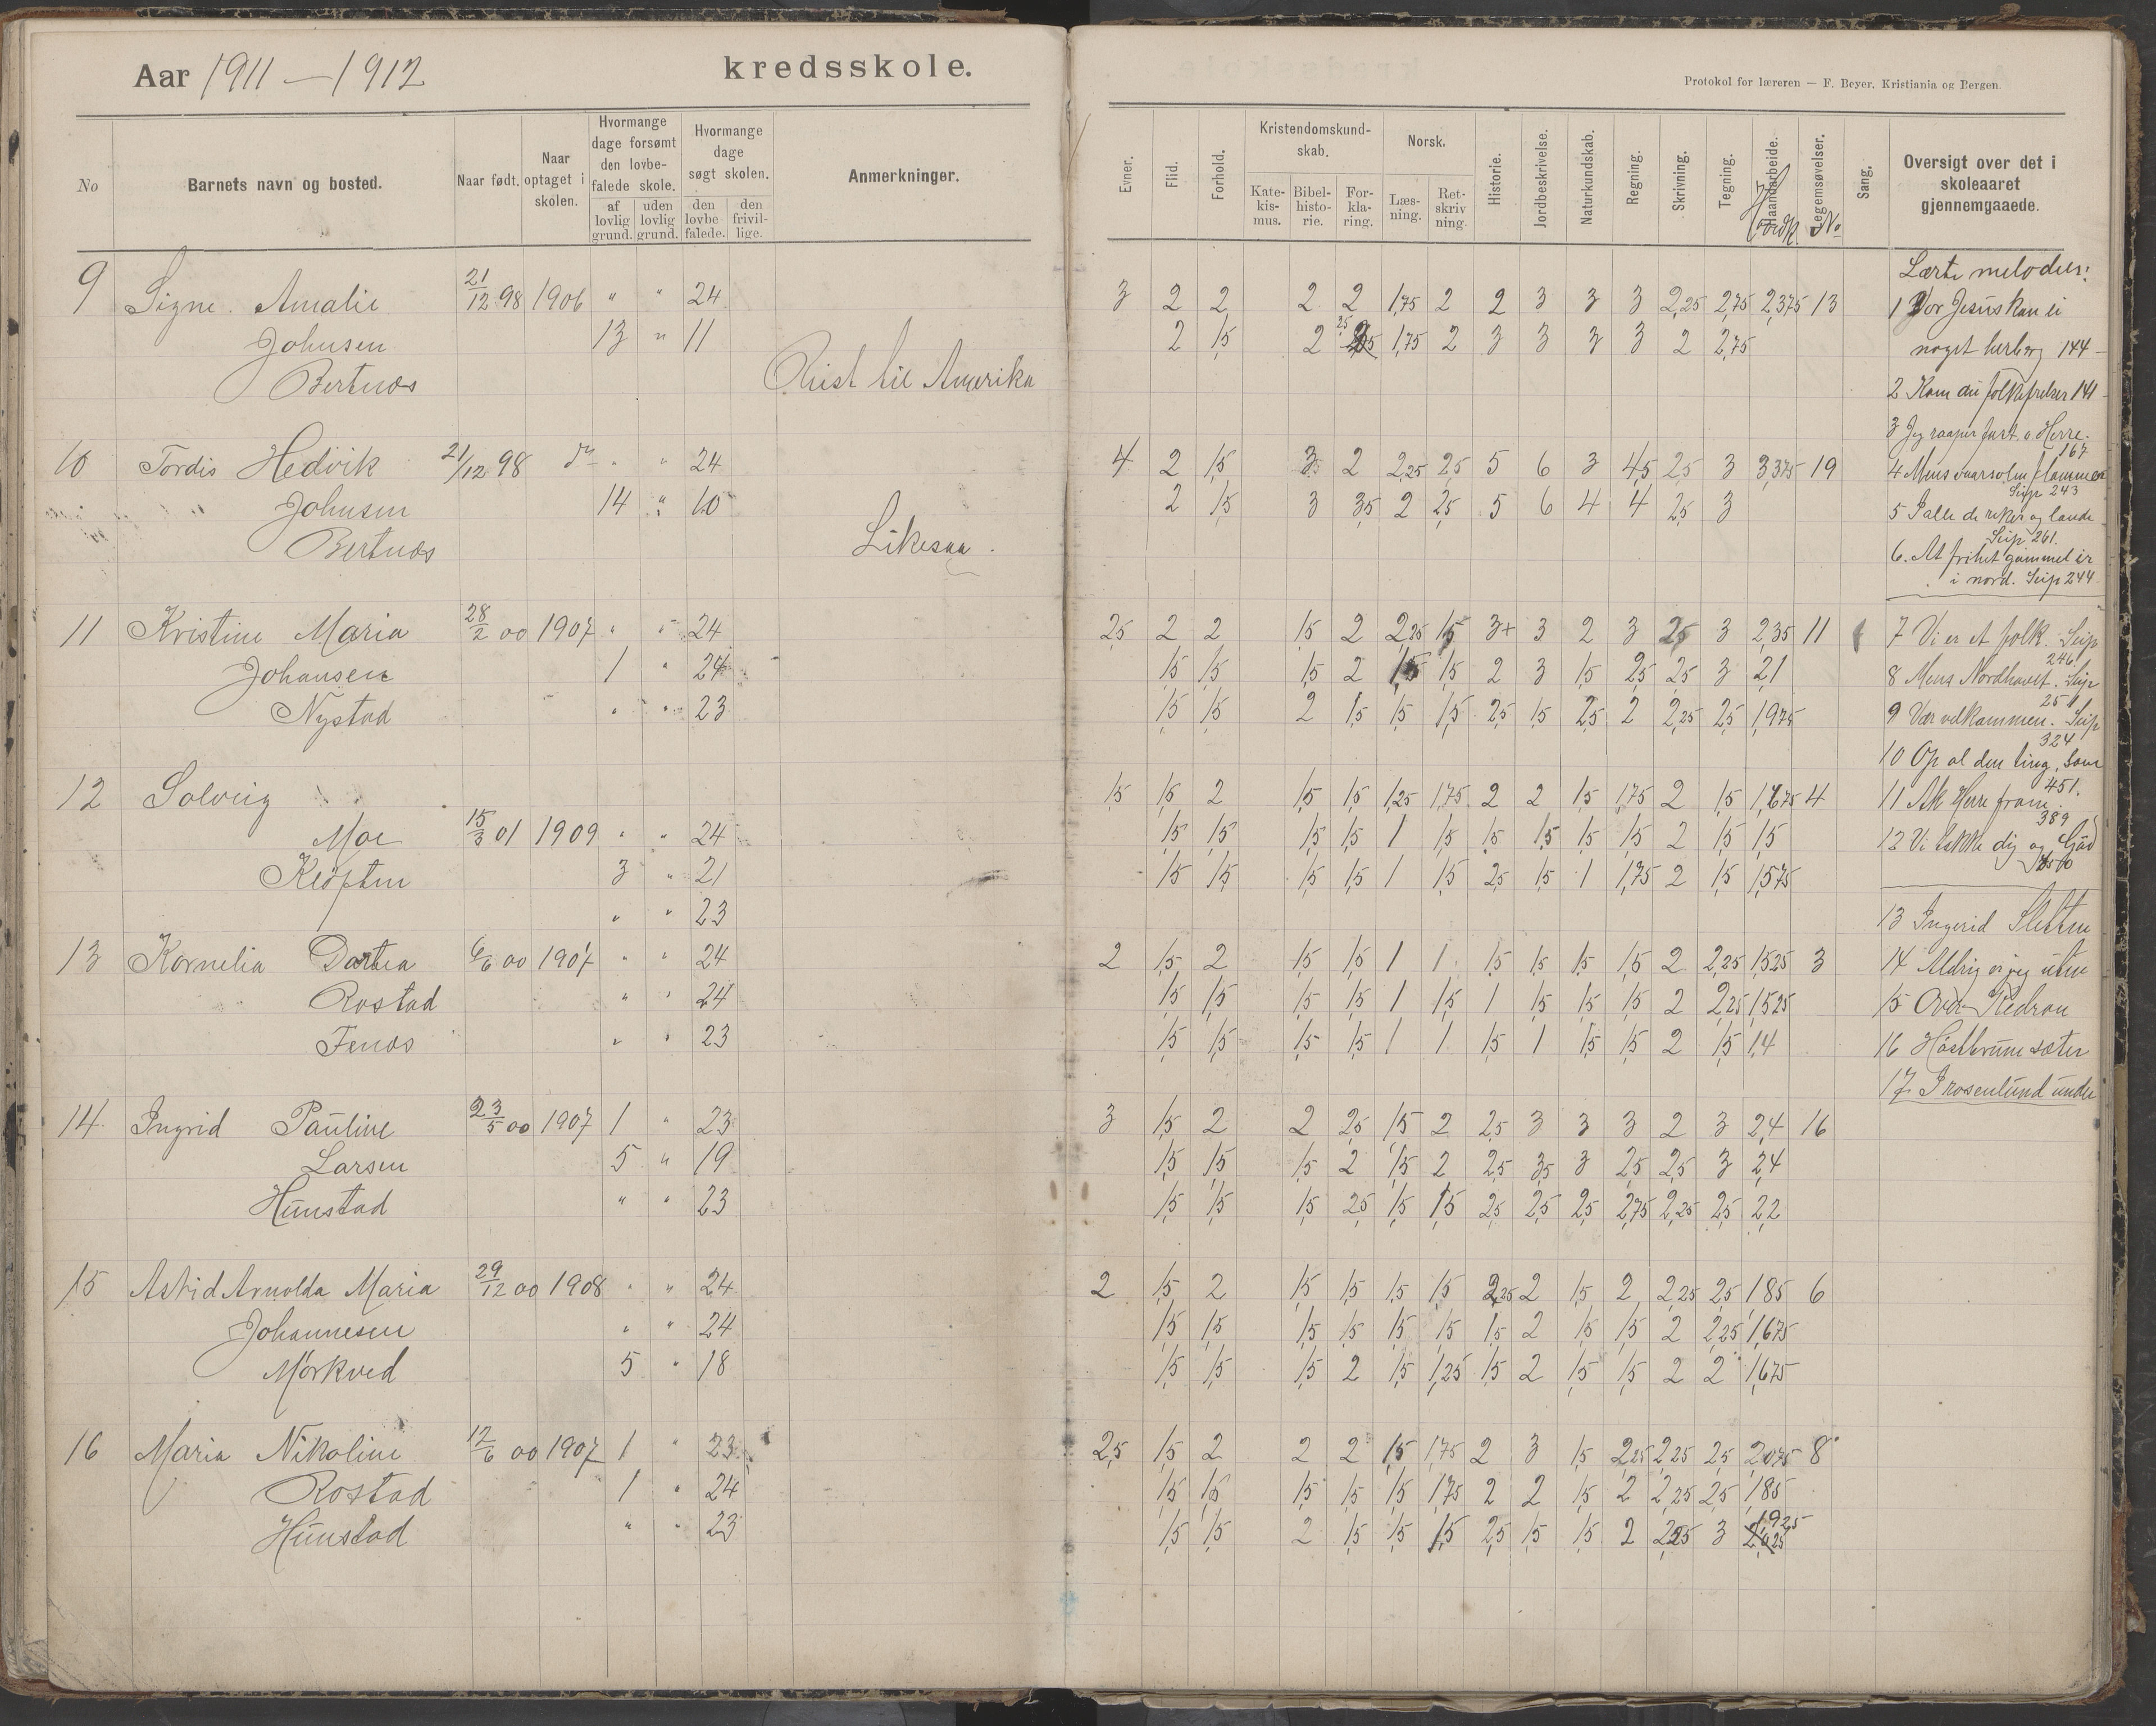 Aar 1911 – 1912
kredsskole.
Protokol for læreren — F. Beyer, Kristiania og Bergen.
No
Barnets navn og bosted.
Naar født.
Naar optaget i skolen.
Hvormange dage forsømt den lovbefalede skole.
af lovlig grund.
uden lovlig grund.
Hvormange dage søgt skolen.
den lovbefalede.
den frivillige.
Anmerkninger.
Evner.
Flid.
Forhold.
Kristendomskundskab.
Katekismus.
Bibelhistorie.
Forklaring.
Norsk.
Læsning.
Retskrivning.
Historie.
Jordbeskrivelse.
Naturkundskab.
Regning.
Skrivning.
Tegning.
Haandarbeide.
Legemsøvelser.
No
Sang.
Oversigt over det i skoleaaret gjennemgaaede.
9 Signe Amalie 21/12 98 1906 " " 24
3 2 2 2 2 1,75 2 2 3 3 3 2,25 2,75 2,375 13
Johnsen 13 " 11
2 1,5 2 2,5 1,75 2 3 3 3 3 2 2,75
Bertnæs Reist til Amerika
10 Tordis Hedvik 21/12 98 do " " 24
4 2 1,5 3 2 2,25 2,5 5 6 3 4,5 2,5 3 3,375 19
Johnsen 14 " 10
2 1,5 3 3,5 2 2,5 5 6 4 4 2,5 3
Bertnæs Likesaa.
11 Kristine Maria 28/2 00 1907 " " 24
2,5 2 2 1,5 2 2,25 1,5 3+ 3 2 3 2,5 3 2,35 11
Johansen 1 " 24
1,5 1,5 1,5 2 1,5 1,5 2 3 1,5 2,5 2,5 3 2,1
Nystad " " 23
1,5 1,5 2 1,5 1,5 1,5 2,5 1,5 2,5 2 2,25 2,5 1,975
12 Solveig
1,5 1,5 2 1,5 1,5 1,25 1,75 2 2 1,5 1,75 2 1,5 1,675 4
Moe 15/3 01 1909 " " 24
1,5 1,5 1,5 1,5 1 1,5 1,5 1,5 1,5 1,5 2 1,5 1,5
Kløften 3 " 21
1,5 1,5 1,5 1,5 1 1,5 2,5 1,5 1 1,75 2 1,5 1,575
" " 23
13 Kornelia Dortea 6/6 00 1907 " " 24
2 1,5 2 1,5 1,5 1 1 1,5 1,5 1,5 1,5 2 2,25 1,525 3
Rostad " " 24
1,5 1,5 1,5 1,5 1 1,5 1 1,5 1,5 1,5 2 2,25 1,525
Fenes " " 23
1,5 1,5 1,5 1,5 1 1 1,5 1 1,5 1,5 2 1,5 1,4
14. Ingrid Pauline 23/5 00 1907 1 " 23
3 1,5 2 2 2,5 1,5 2 2,5 3 3 3 2 3 2,4 16
Larsen 5 " 19
1,5 1,5 1,5 2 1,5 2 2,5 3,5 3 2,5 2,5 3 2,4
Hunstad " " 23
1,5 1,5 1,5 2,5 1,5 1,5 2,5 2,5 2,5 2,75 2,25 2,5 2,2
15 Astrid Arnolda Maria 29/12 00 1908 " " 24
2 1,5 2 1,5 1,5 1,5 1,5 2,25 2 1,5 2 2,25 2,5 1,85 6
Johannesen " " 24
1,5 1,5 1,5 1,5 1,5 1,5 1,5 2 1,5 1,5 2 2,25 1,675
Mørkved 5 " 18
1,5 1,5 1,5 2 1,5 1,25 1,5 2 1,5 1,5 2 2 1,675
16 Maria Nikoline 12/6 00 1907 1 " 23
2,5 1,5 2 2 2 1,5 1,75 2 3 1,5 2,25 2,25 2,5 2,075 8
Rostad 1 " 24
1,5 1,5 1,5 1,5 1,5 1,75 2 2 1,5 2 2,25 2,5 1,85
Hunstad " " 23
1,5 1,5 2 1,5 1,5 1,5 2,5 1,5 1,5 2 2,25 3 1,925
Lærte melodier:
1 Hvor Jesus kan ei
noget herberg 144
2 Kom du folkefrelser 141
3 Jeg raaper fast, o Herre.
167
4 Mens vaarsolen flammer
Seip 243
5 I alle de riker og lande
Seip 261.
6. At frihet gammel er
i nord. Seip 244
7 Vi er et folk. Seip
246.
8 Mens Nordhavet. Seip
251
9 Vær velkommen. Seip
324
10 Op al den ting, som
451.
11 Ak Herre from.
389
12 Vi takke dig og Gud
13 Ingerid Sletten
14 Aldrig er jeg uten
15 Over Kedron
16 Høstbrune sæter
17 I rosenlund under